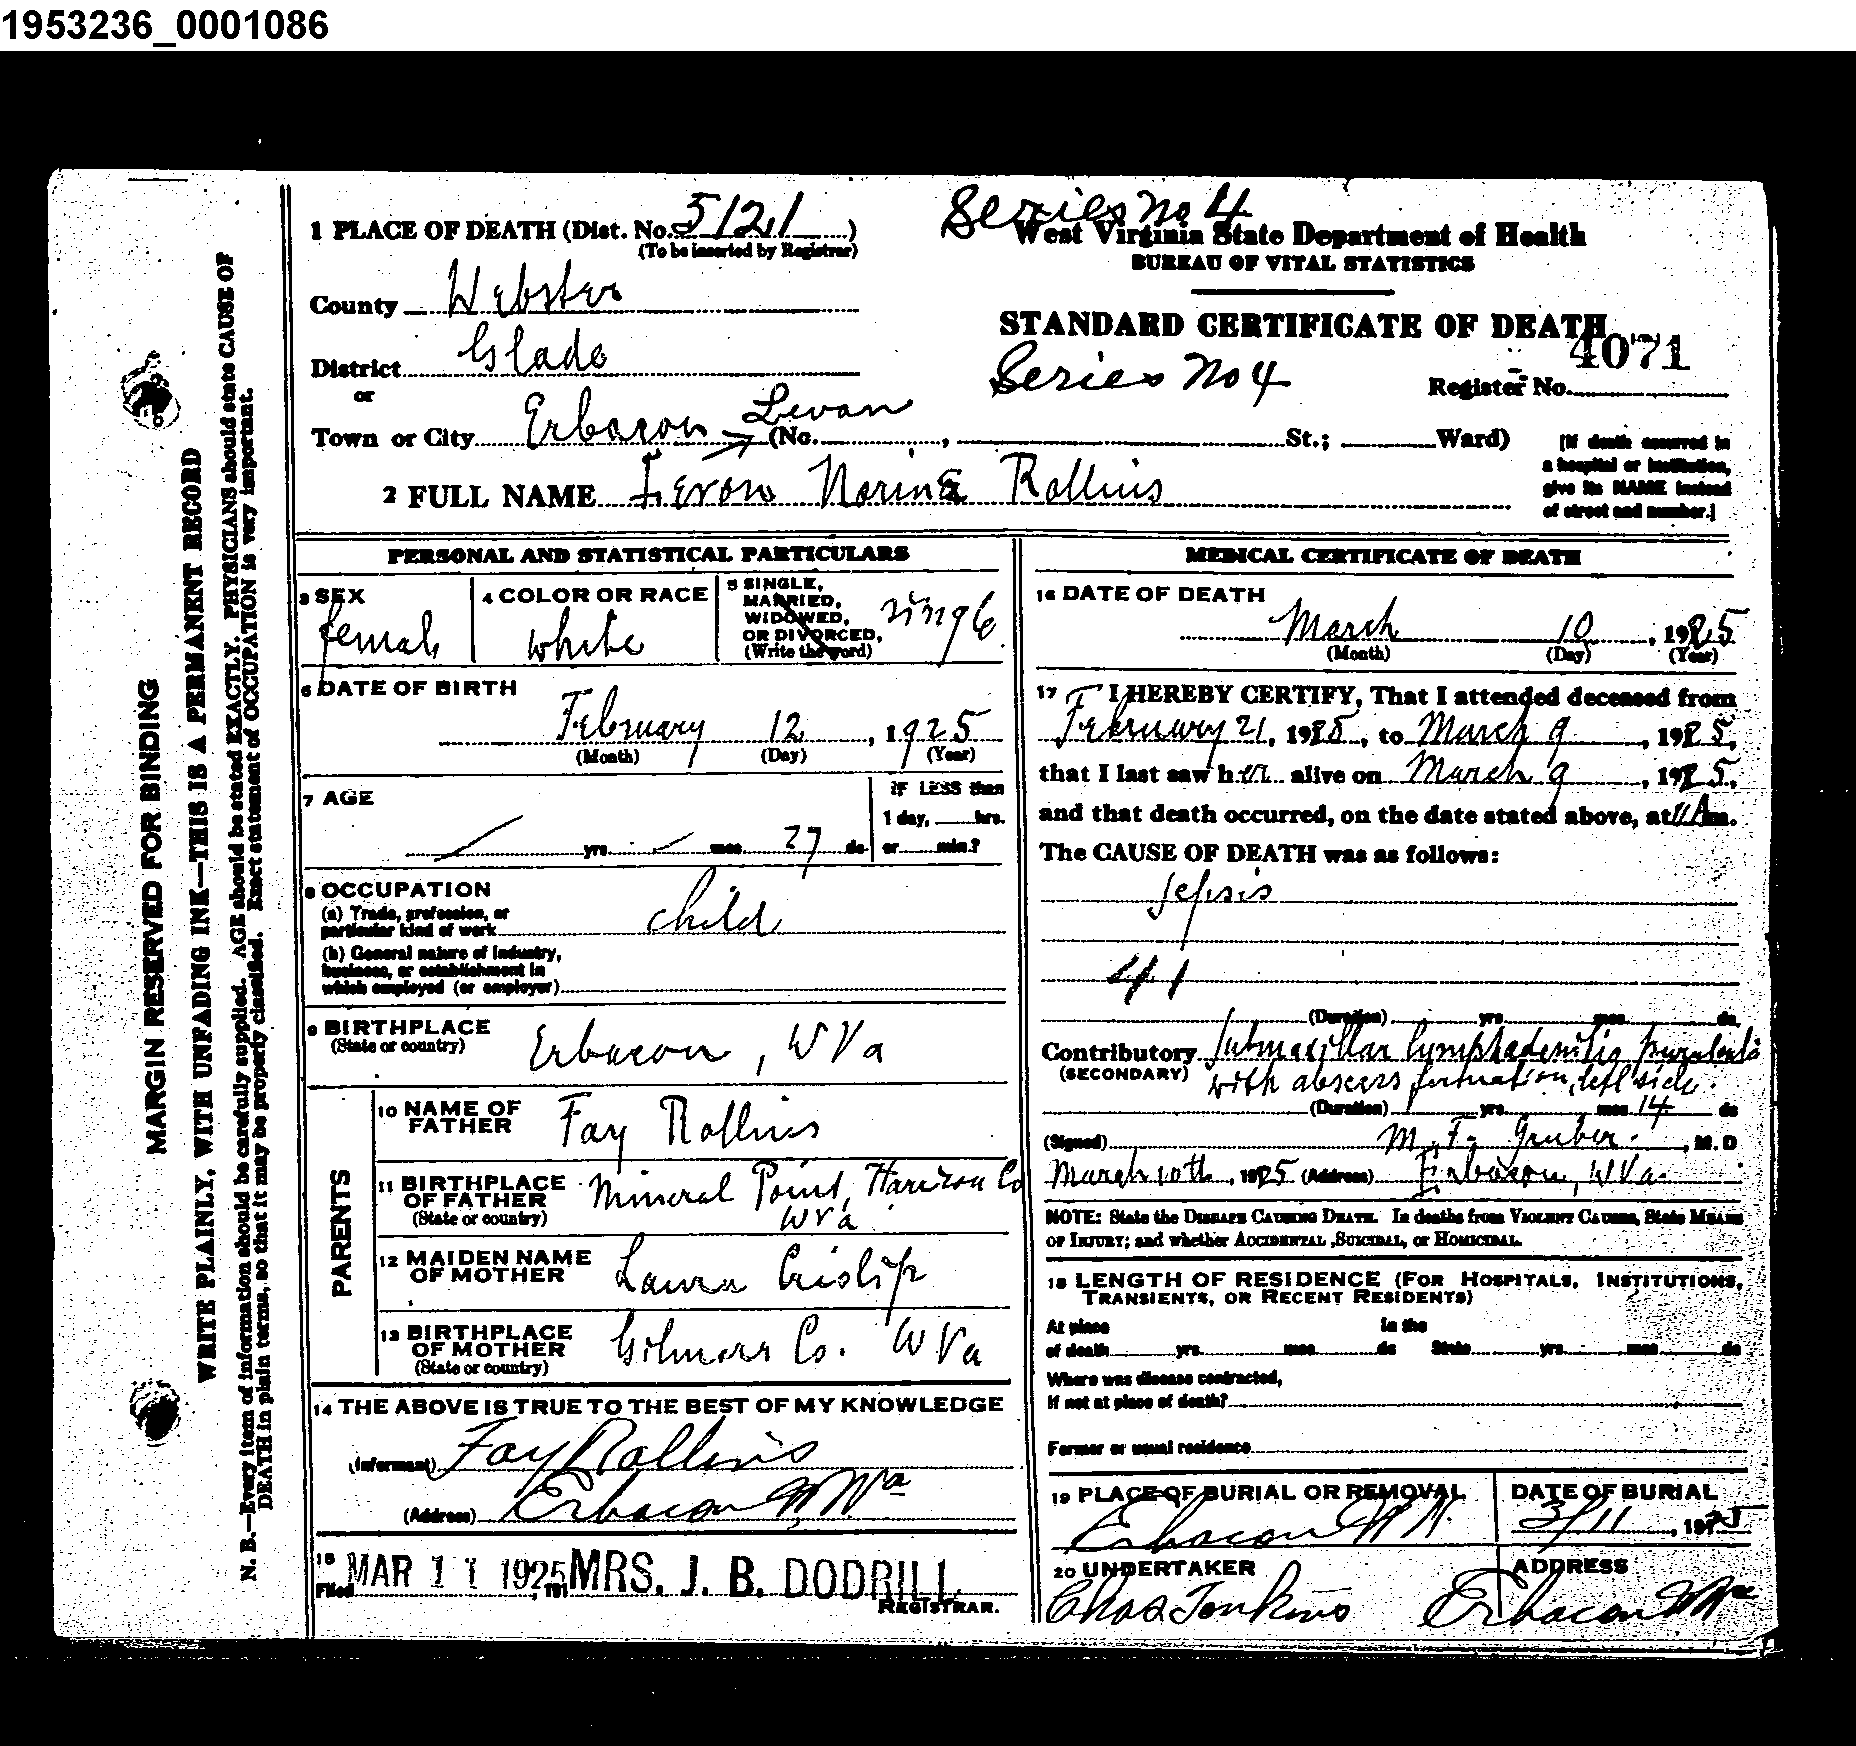 1953236_0001086
Series No 4
1 PLACE OF DEATH (Dist. No. 5121)
(To be inserted by Registrar)
West Virginia State Department of Health
BUREAU OF VITAL STATISTICS
County Webster
STANDARD CERTIFICATE OF DEATH
District Glade
Series No 4
4071
Register No.
or
Levan
Town or City Erbacon (No. , St.; Ward)
[If death occurred in
a hospital or institution,
give its NAME instead
of street and number.]
2 FULL NAME Norine Rollins
PERSONAL AND STATISTICAL PARTICULARS
3 SEX
female
4 COLOR OR RACE
white
5 SINGLE,
MARRIED,
WIDOWED,
OR DIVORCED,
(Write the word)
single
6 DATE OF BIRTH
February 12, 1925
(Month) (Day) (Year)
7 AGE
yrs. mos. 27 ds.
IF LESS than
1 day, hrs.
or min.?
8 OCCUPATION
(a) Trade, profession, or
particular kind of work child
(b) General nature of industry,
business, or establishment in
which employed (or employer)
9 BIRTHPLACE
(State or country)
Erbacon, W Va
PARENTS
10 NAME OF
FATHER
Fay Rollins
11 BIRTHPLACE
OF FATHER
(State or country)
Mineral Point, Harrison Co
W Va
12 MAIDEN NAME
OF MOTHER
Laura Crislip
13 BIRTHPLACE
OF MOTHER
(State or country)
Gilmer Co. W Va
14 THE ABOVE IS TRUE TO THE BEST OF MY KNOWLEDGE
(Informant) Fay Rollins
(Address) Erbacon W. Va
15
Filed MAR 11 1925, 191 MRS. J. B. DODRILL
REGISTRAR.
MEDICAL CERTIFICATE OF DEATH
16 DATE OF DEATH
March 10, 1925
(Month) (Day) (Year)
17 I HEREBY CERTIFY, That I attended deceased from
February 21, 1925, to March 9, 1925,
that I last saw her alive on March 9, 1925,
and that death occurred, on the date stated above, at 11 A m.
The CAUSE OF DEATH was as follows:
Sepsis
41
(Duration) yrs. mos. ds.
Contributory Submaxillar lymphadenitis purulenta
(SECONDARY) with abscess formation, left side.
(Duration) yrs. mos. 14 ds
(Signed) M. F. Gruber, M. D
March 10th, 1925 (Address) Erbacon, W Va.
NOTE: State the DISEASE CAUSING DEATH. In deaths from VIOLENT CAUSES, State MEANS
OF INJURY; and whether ACCIDENTAL, SUICIDAL, or HOMICIDAL.
18 LENGTH OF RESIDENCE (FOR HOSPITALS, INSTITUTIONS,
TRANSIENTS, OR RECENT RESIDENTS)
At place In the
of death yrs. mos. ds State yrs. mos. ds
Where was disease contracted,
If not at place of death?
Former or usual residence
19 PLACE OF BURIAL OR REMOVAL
Erbacon W V.
DATE OF BURIAL
3/11, 1925
20 UNDERTAKER
Chas Jenkins
ADDRESS
Erbacon W Va
MARGIN RESERVED FOR BINDING
WRITE PLAINLY, WITH UNFADING INK—THIS IS A PERMANENT RECORD
N. B.—Every item of information should be carefully supplied. AGE should be stated EXACTLY. PHYSICIANS should state CAUSE OF
DEATH in plain terms, so that it may be properly classified. Exact statement of OCCUPATION is very important.